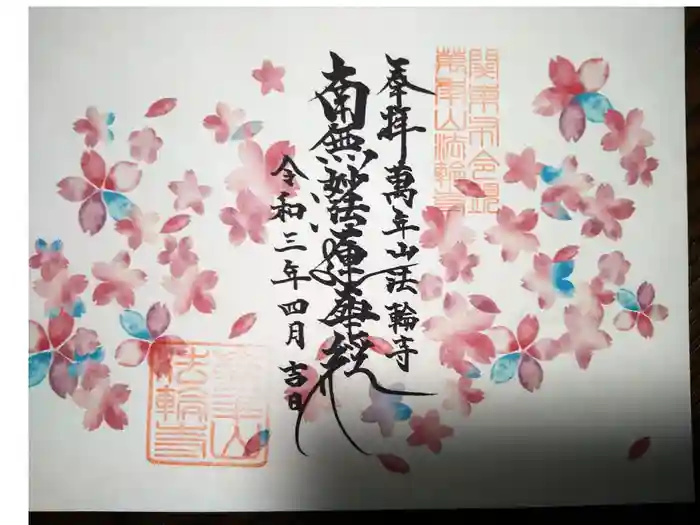 関東不令親
萬年山法輪寺
奉拝 萬年山法輪寺
南無妙法蓮華経
令和三年四月吉日
萬年山
法輪寺